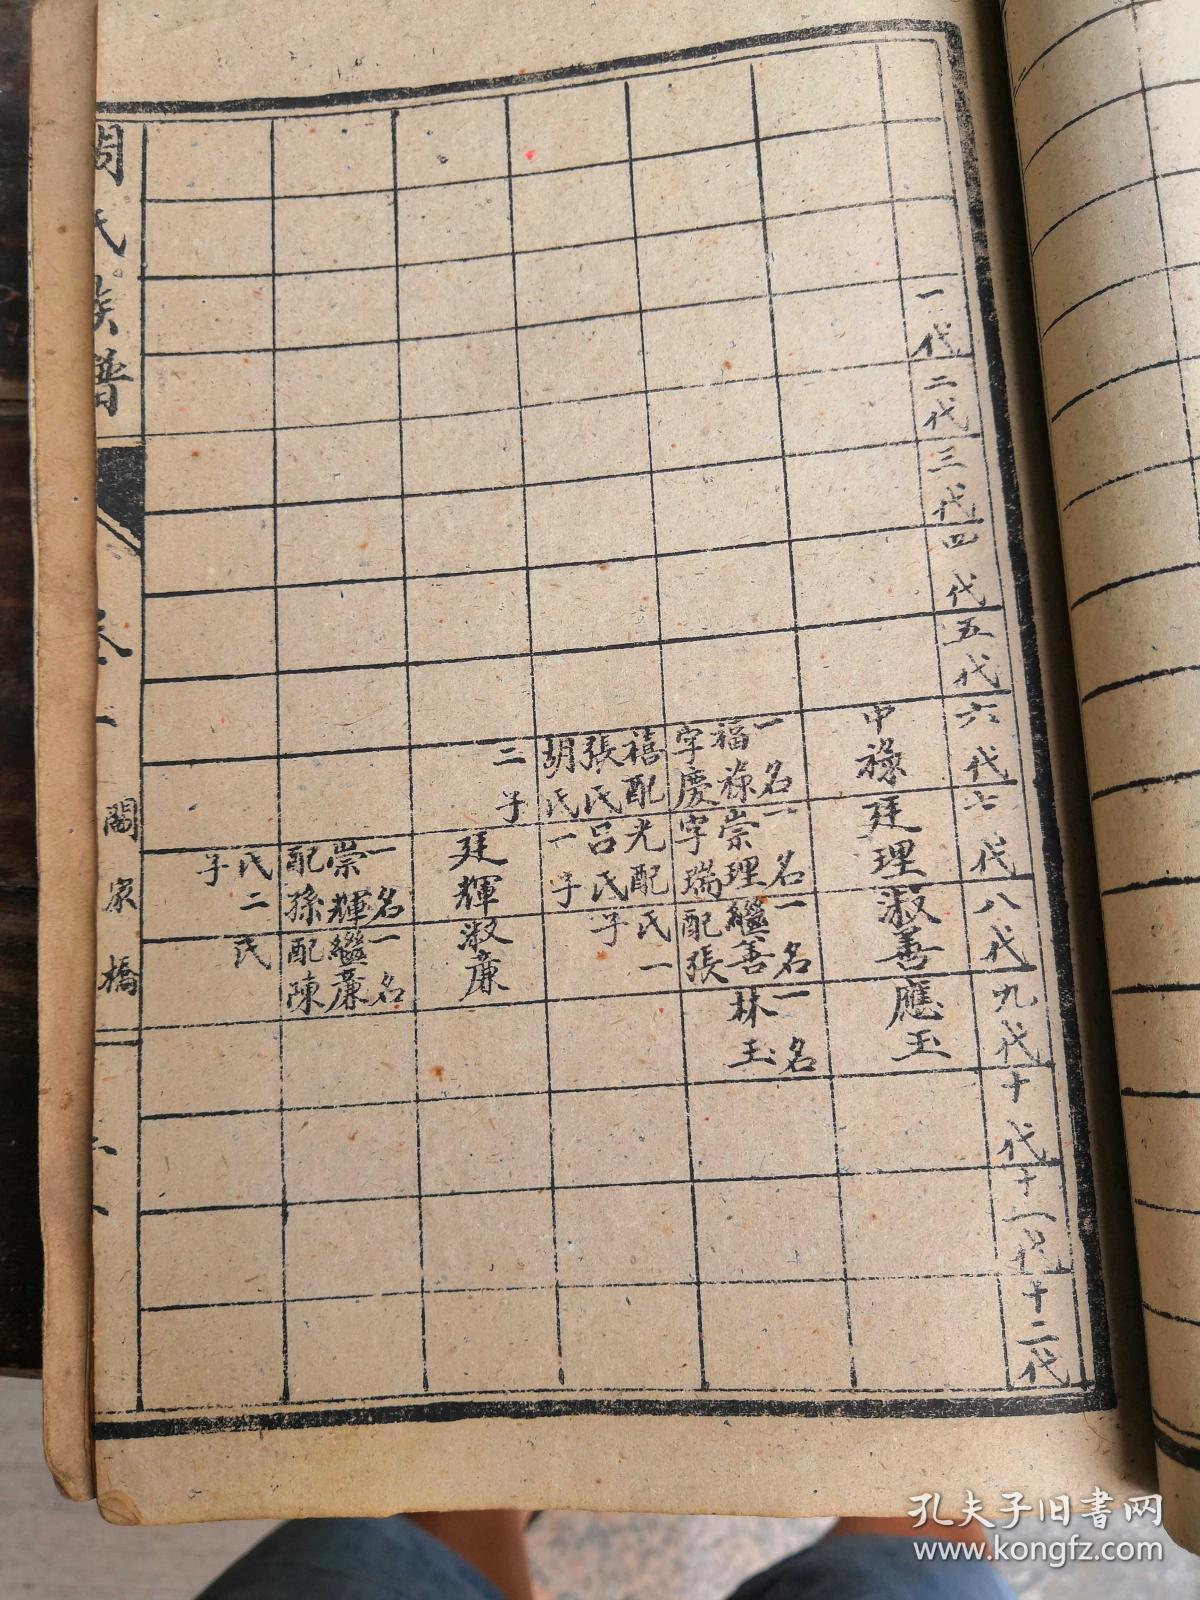 一代
二代
三代
四代
五代
六代
七代
八代
九代
十代
十一代
十二代
中祿
廷理
淑善
應玉
一名
福祿
字慶
禧配
張氏
胡氏
二子
一名
崇理
字瑞
光配
呂氏
一子
一名
繼善
配張
氏一
子
一名
林玉
廷輝
淑廉
一名
崇輝
配孫
氏二
子
一名
繼廉
配陳
氏
氏族譜
卷二
閻家橋
孔夫子旧书网
www.kongfz.com